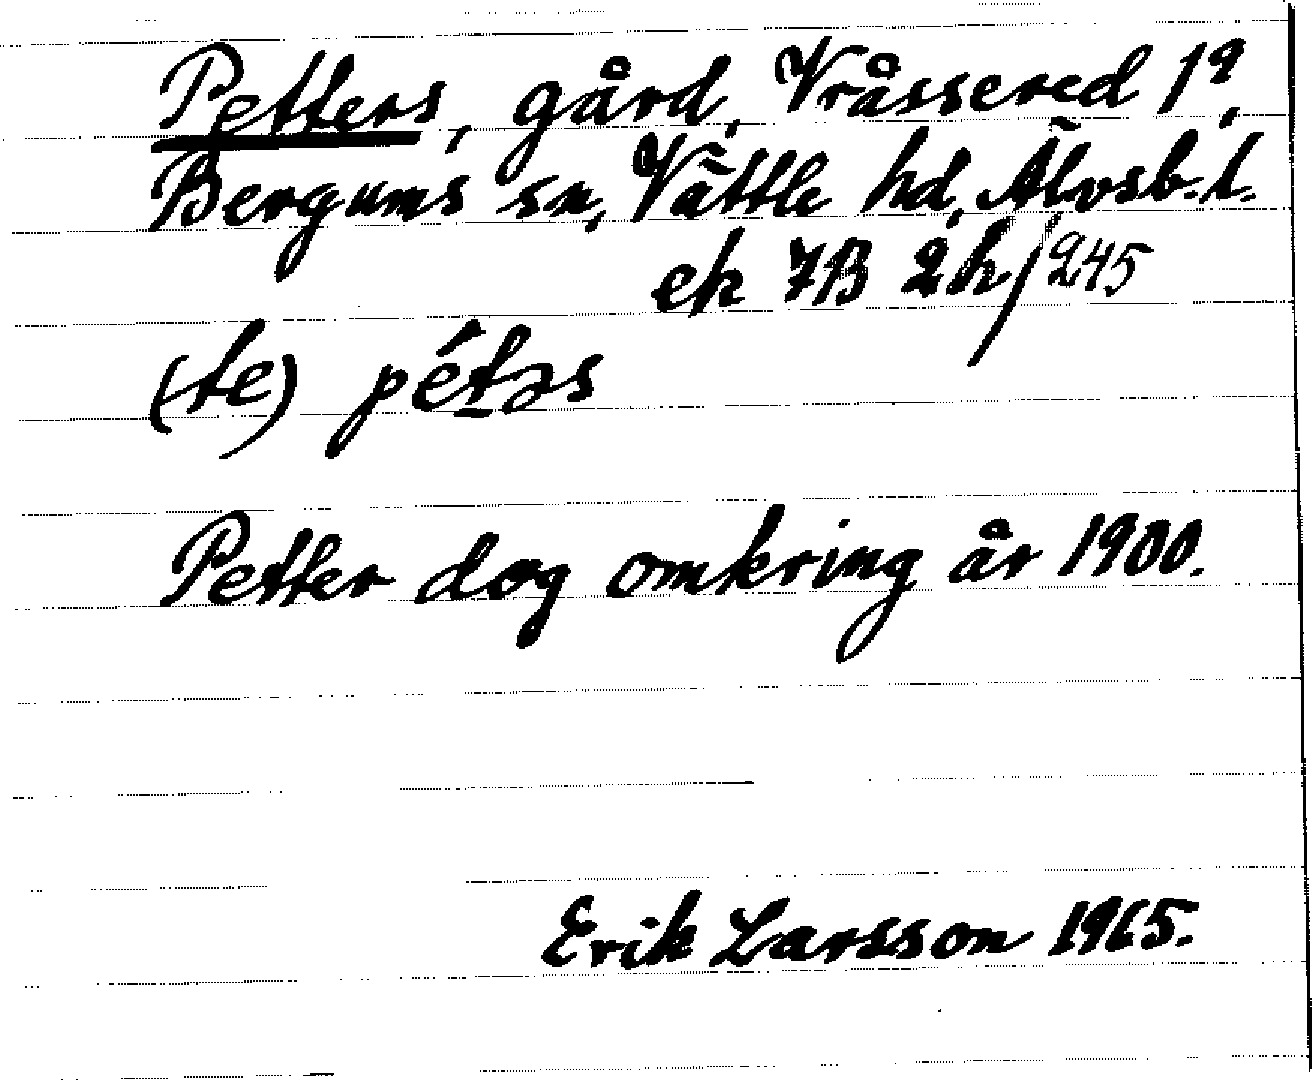 Petters, gård, Vråssered 1⁹,
Bergums sn, Vättle hd, Älvsb. l.
ek 7B 2h/245
(te) pétəs
Petter dog omkring år 1900.
Erik Larsson 1965.